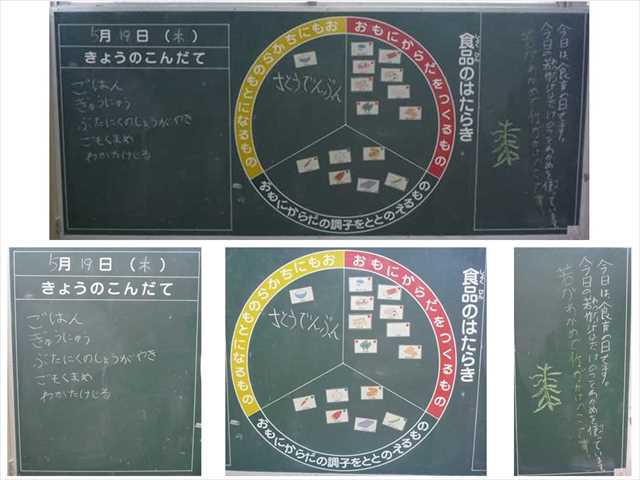 5月19日(木)
きょうのこんだて
ごはん
ぎゅうにゅう
ぶたにくのしょうがやき
ごもくまめ
わかたけじる
おもにちからのもとになるもの
おもにからだをつくるもの
おもにからだの調子をととのえるもの
さとうでんぷん
食品のはたらき
今日は、食育の日です。
5月19日(木)
きょうのこんだて
ごはん
ぎゅうにゅう
ぶたにくのしょうがやき
ごもくまめ
わかたけじる
おもにちからのもとになるもの
おもにからだをつくるもの
おもにからだの調子をととのえるもの
さとうでんぷん
食品のはたらき
今日は、食育の日です。